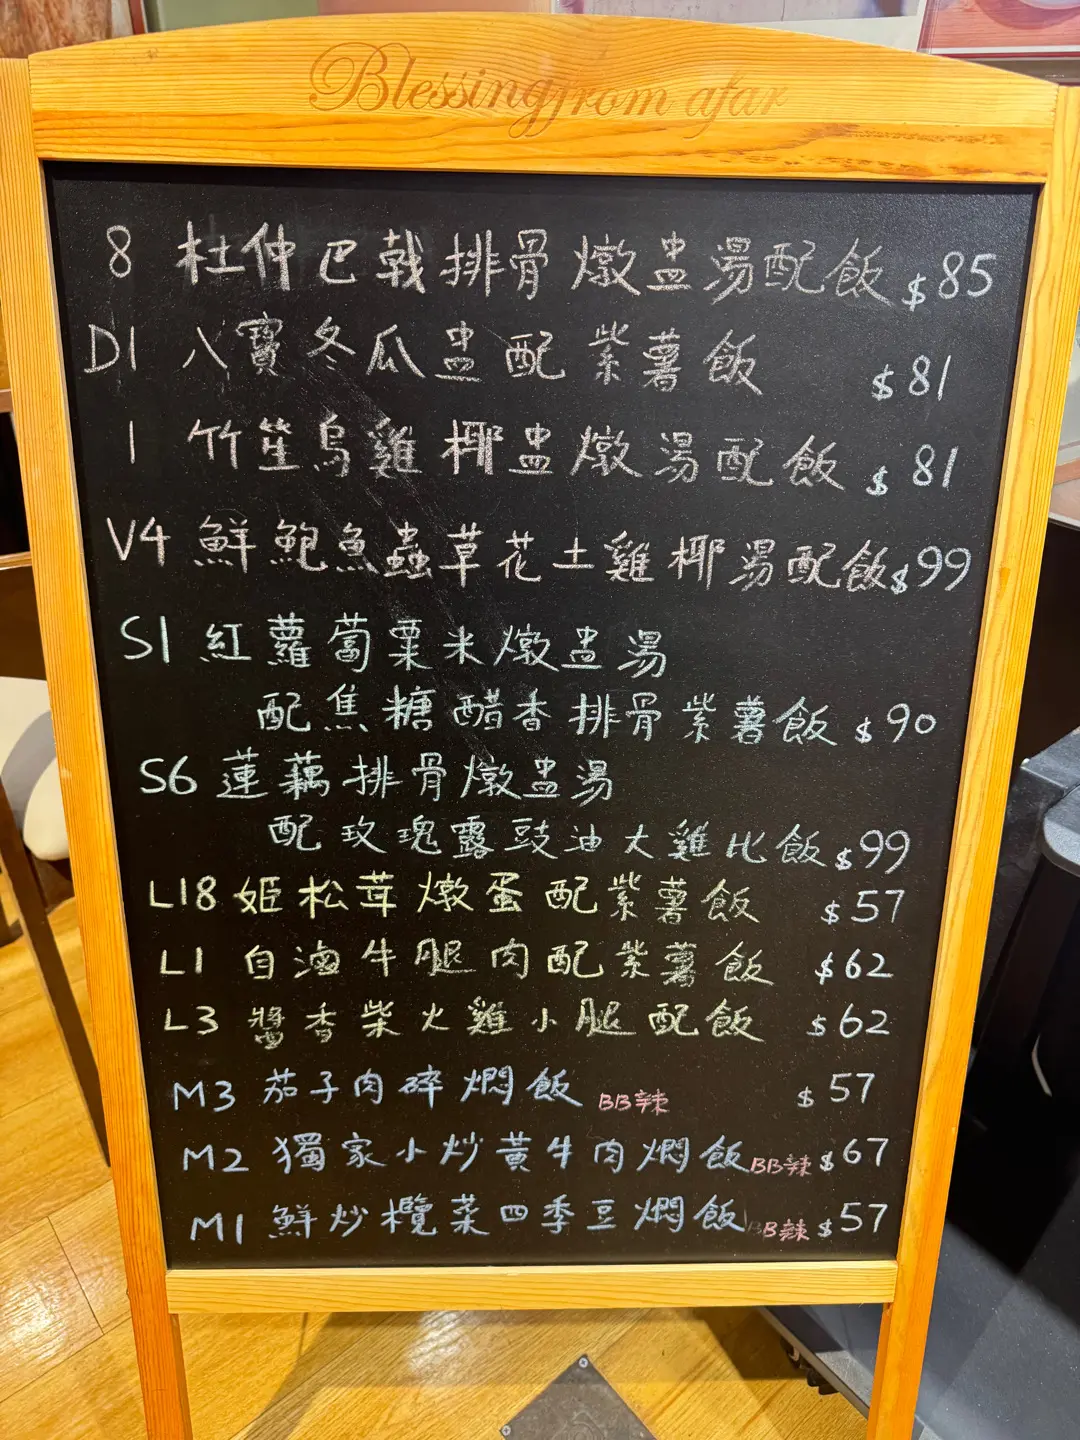 Blessing from afar
8 杜仲巴戟排骨燉盅湯配飯 $85
D1 八寶冬瓜盅配紫薯飯 $81
1 竹笙烏雞椰盅燉湯配飯 $81
V4 鮮鮑魚蟲草花土雞椰湯配飯 $99
S1 紅蘿蔔粟米燉盅湯
配焦糖醋香排骨紫薯飯 $90
S6 蓮藕排骨燉盅湯
配玫瑰露豉油大雞比飯 $99
L18 姬松茸燉蛋配紫薯飯 $57
L1 白滷牛腿肉配紫薯飯 $62
L3 醬香柴火雞小腿配飯 $62
M3 茄子肉碎燜飯 BB辣 $57
M2 獨家小炒黃牛肉燜飯 BB辣 $67
M1 鮮炒欖菜四季豆燜飯 BB辣 $57